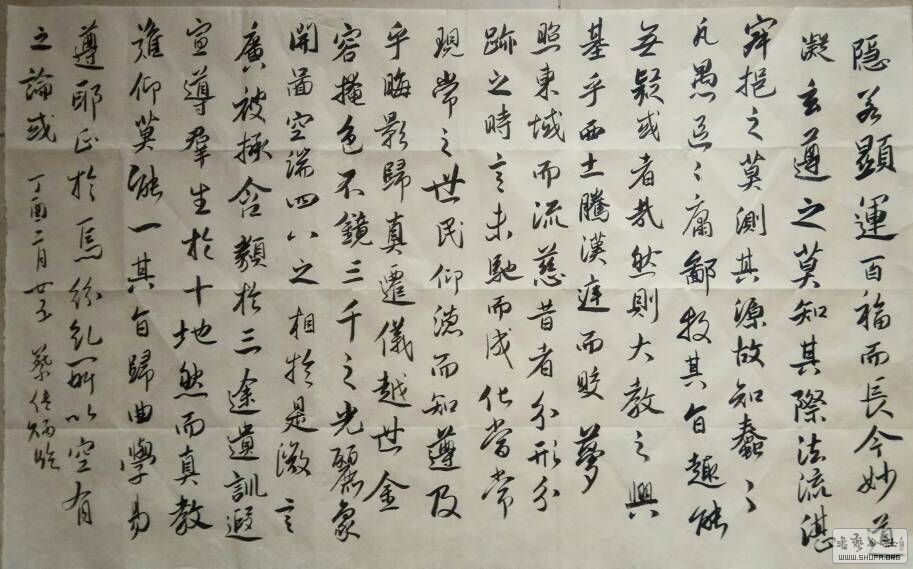 隐若顯運百福而長今妙道
凝玄遵之莫知其際法流湛
寂挹之莫測其源故知蠢〻
凡愚區〻庸鄙投其旨趣能
無疑或者哉然則大教之興
基乎西土騰漢庭而皎夢
照東域而流慈昔者分形分
跡之時言未馳而成化當常
現常之世民仰德而知遵及
乎晦影歸真遷儀越世金
容掩色不鏡三千之光麗象
開圖空端四八之相於是微言
廣被拯含類於三途遺訓遐
宣導羣生於十地然而真教
難仰莫能一其旨歸曲學易
遵邪正於焉紛糺所以空有
之論或 丁酉二月廿 蔡 臨
WWW.SHUFA.ORG